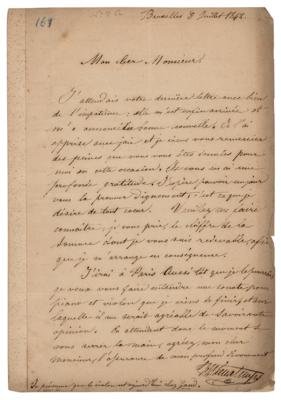 161
Bruxelles 8 Juillet 1842.
Mon cher Monieur!
J'attendais votre dernière lettre avec bien
de l'impatience; elle m'est enfin arrivée et
m'a annoncé la bonne nouvelle. Je l'ai
apprise avec joie et je viens vous remercier
des peines que vous vous êtes données pour
moi en cette occasion. Je vous en ai une
profonde gratitude. J'espère pouvoir un jour
vous le prouver dignement, c'est ce que je
désire de tout cœur. Veuillez me faire
connaître, je vous prie, le chiffre de la
somme dont je vous suis redevable, afin
que je m'arrange en conséquence.
J'irai à Paris aussi tôt que je le pourrai,
je veux vous faire entendre une sonate pour
piano et violon que je viens de finir, et sur
laquelle il me serait agréable de savoir votre
opinion. En attendant donc le moment de
vous serrer la main, agréez, mon cher
monsieur, l'assurance de mon profond dévouement
H. Vieuxtemps
Je présume que le violon est aujourd'hui chez